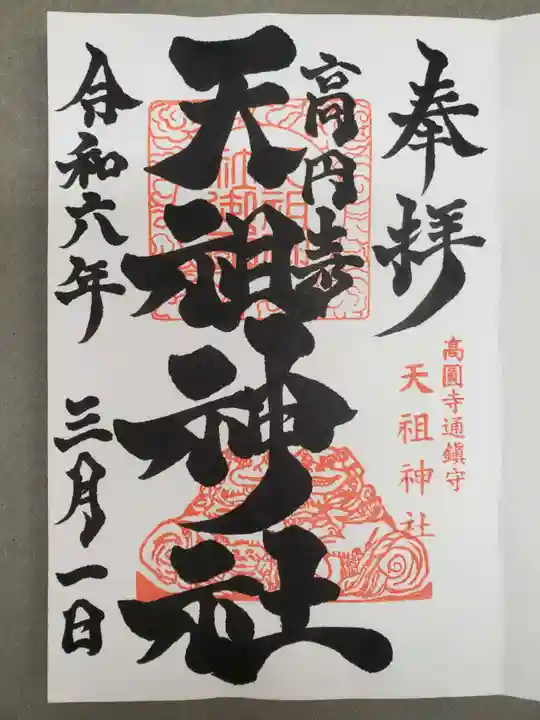 奉拝
高圓寺通鎮守
天祖神社
高円寺
天祖神社
令和六年 三月一日